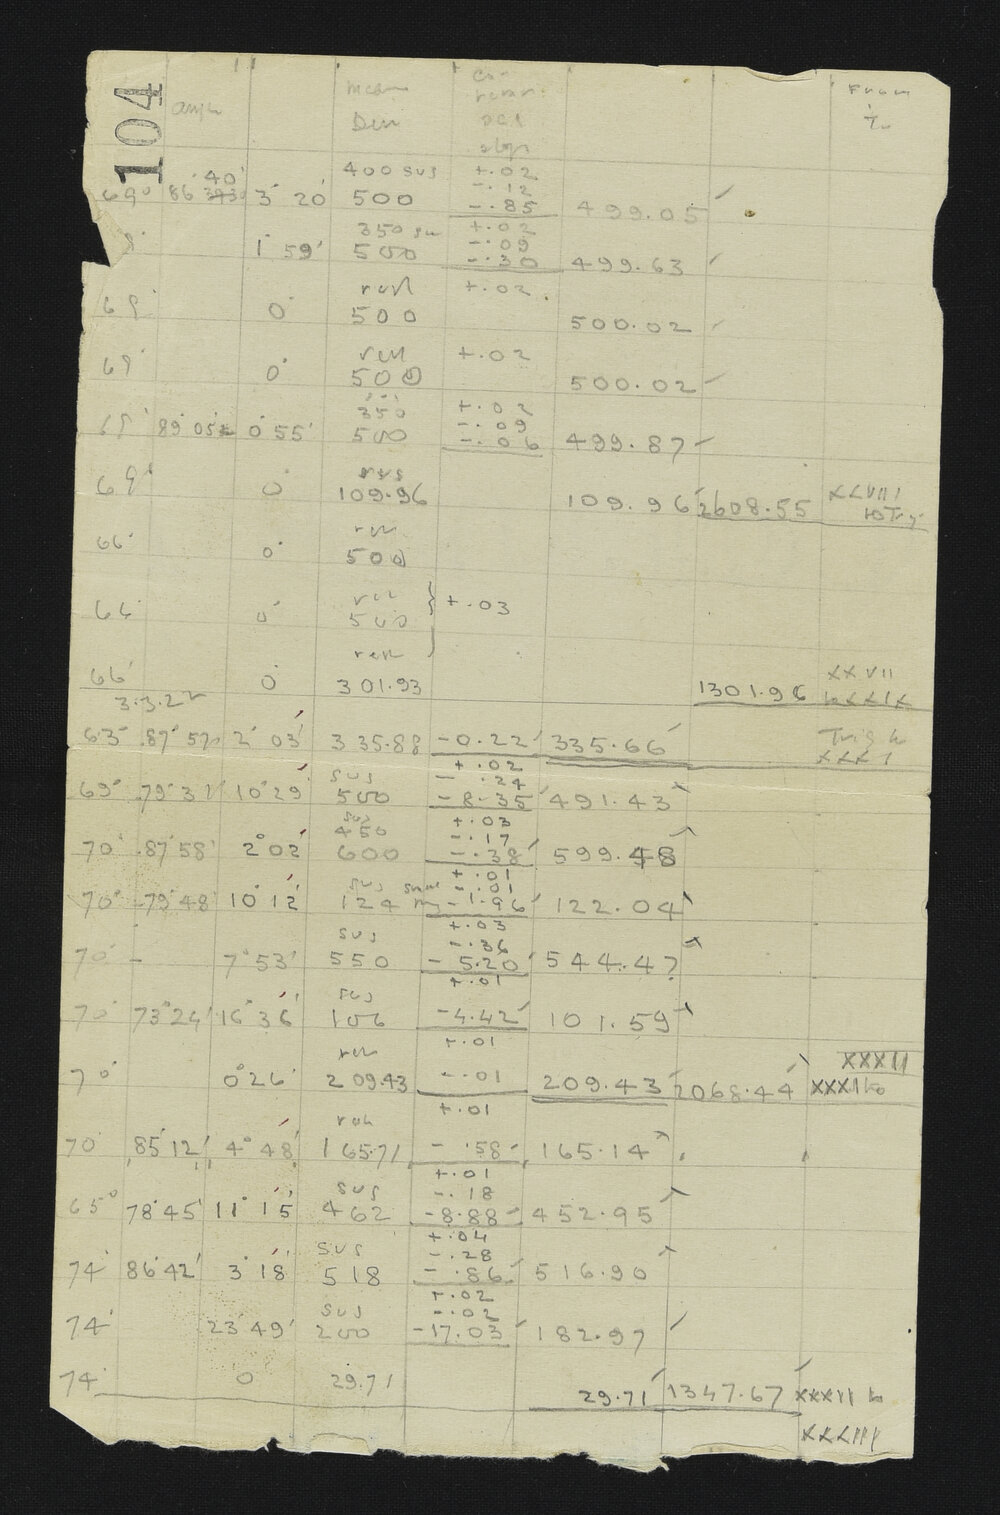 104
Meas Co- From
Dis To
slop
400 sus +.02
40' -.12
69° 86° 3930 3° 20' 500 -.85 499.05
350 sus +.02
-.09
1° 59' 500 -.30 499.63
run +.02
69° 0° 500 500.02
run +.02
69° 0° 500 500.02
350 +.02
-.09
69° 89° 05' 0° 55' 500 -.06 499.87
sus XXVIII
69° 0° 109.96 109.96 2608.55 to Trig
run
66° 0° 500
run
66° 0° 500 } +.03
run XXVII
66° 0° 301.93 1301.96 to XXIX
3.3.22
63° 87° 57' 2° 03' 335.88 -0.22 335.66 Trig to
XXXI
+.02
sus -.24
69° 79° 31' 10° 29' 500 -8.35 491.43
sus +.03
450 -.17
70° 87° 58' 2° 02' 600 -.38 599.48
+.01
sus -.01
70° 79° 48' 10° 12' 124 -1.96 122.04
+.03
sus -.36
70° - 7° 53' 550 -5.20 544.47
sus +.01
70° 73° 24' 16° 36' 106 -4.42 101.59
run +.01 XXXII
70° 0° 26' 209.43 -.01 209.43 2068.44 XXXI to
run +.01
70° 85° 12' 4° 48' 165.71 -.58 165.14
+.01
sus -.18
65° 78° 45' 11° 15' 462 -8.88 452.95
+.04
sus -.28
74° 86° 42' 3° 18' 518 -.86 516.90
+.02
sus -.02
74° 23° 49' 200 -17.03 182.97
74° 0 29.71 29.71 1347.67 XXXII to
XXXIII